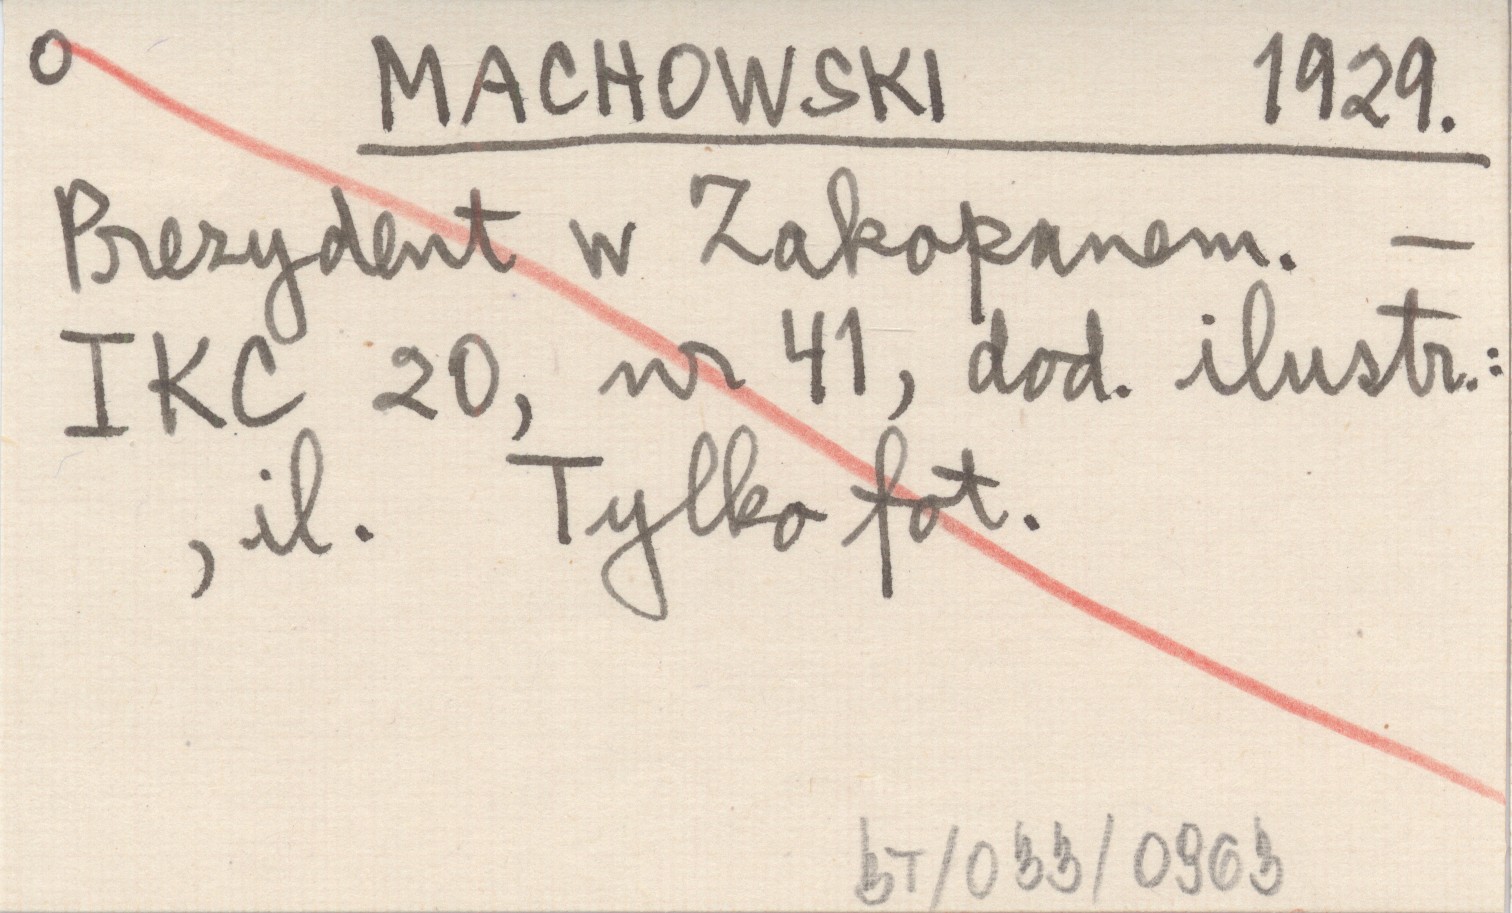 O MACHOWSKI 1929.
Prezydent w Zakopanem. —
IKC 20, nr 41, dod. ilustr.:
, il. Tylko fot.
BT/033/0963